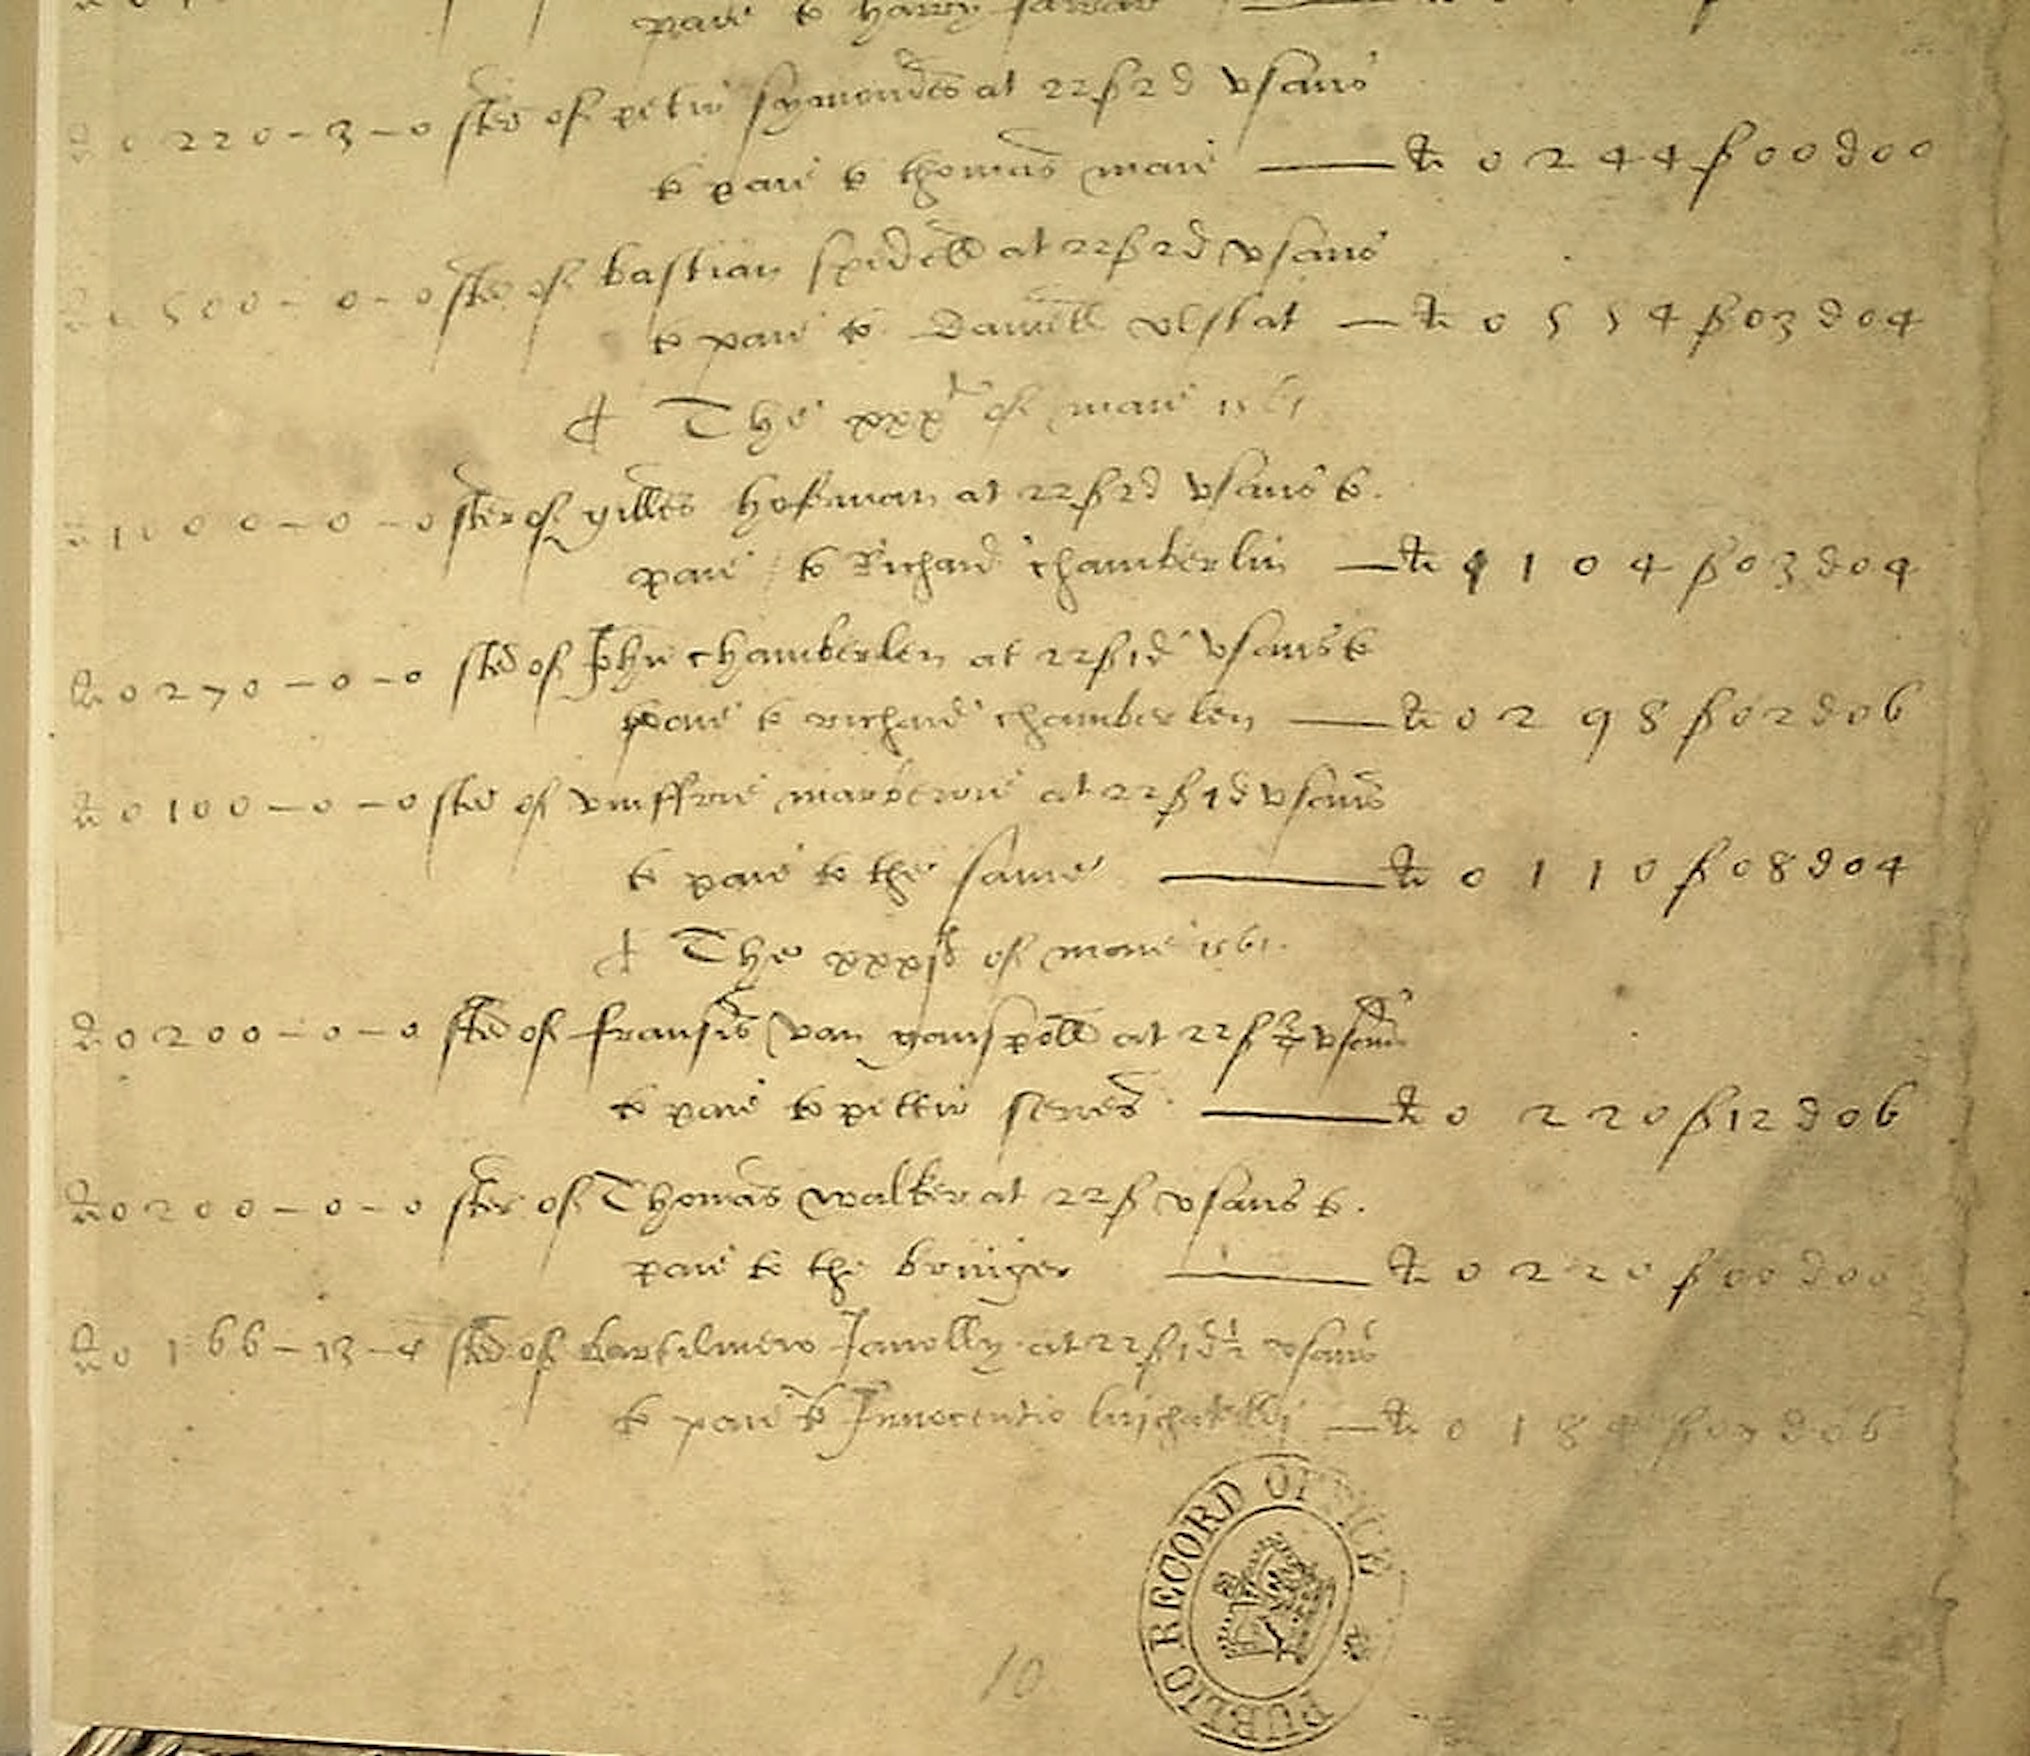 paie to harry
li 0220 - 3 - 0 ster of peter symondes at 22 ß 2 d vsans
to paie to thomas mare — li 0244 ß 00 d 00
li 0500 - 0 - 0 ster of bastian spidell at 22 ß 2 d vsans
to paie to Daniell vlstat — li 0554 ß 03 d 04
¶ The xxx of maie 1561
li 1000 - 0 - 0 ster of gilles hofman at 22 ß 2 d vsans to
paie to Richard chamberlin — li 1104 ß 03 d 04
li 0270 - 0 - 0 ster of John chamberlen at 22 ß 1 d vsans to
paie to richard chamberlen — li 0298 ß 02 d 06
li 0100 - 0 - 0 ster of vmffrie marberie at 22 ß 1 d vsans
to paie to the same — li 0110 ß 08 d 04
¶ The xxxj of maie 1561
li 0200 - 0 - 0 ster of fransis van at 22 ß vsans
to paie to petter — li 0220 ß 12 d 06
li 0200 - 0 - 0 ster of Thomas walker at 22 ß vsans to
paie to the bringer — li 0220 ß 00 d 00
li 0166 - 13 - 4 ster of bartilmew at 22 ß 1 d 1/2 vsans
to paie to Innocentio — li 0184 ß 07 d 06
PUBLIC RECORD OFFICE
10